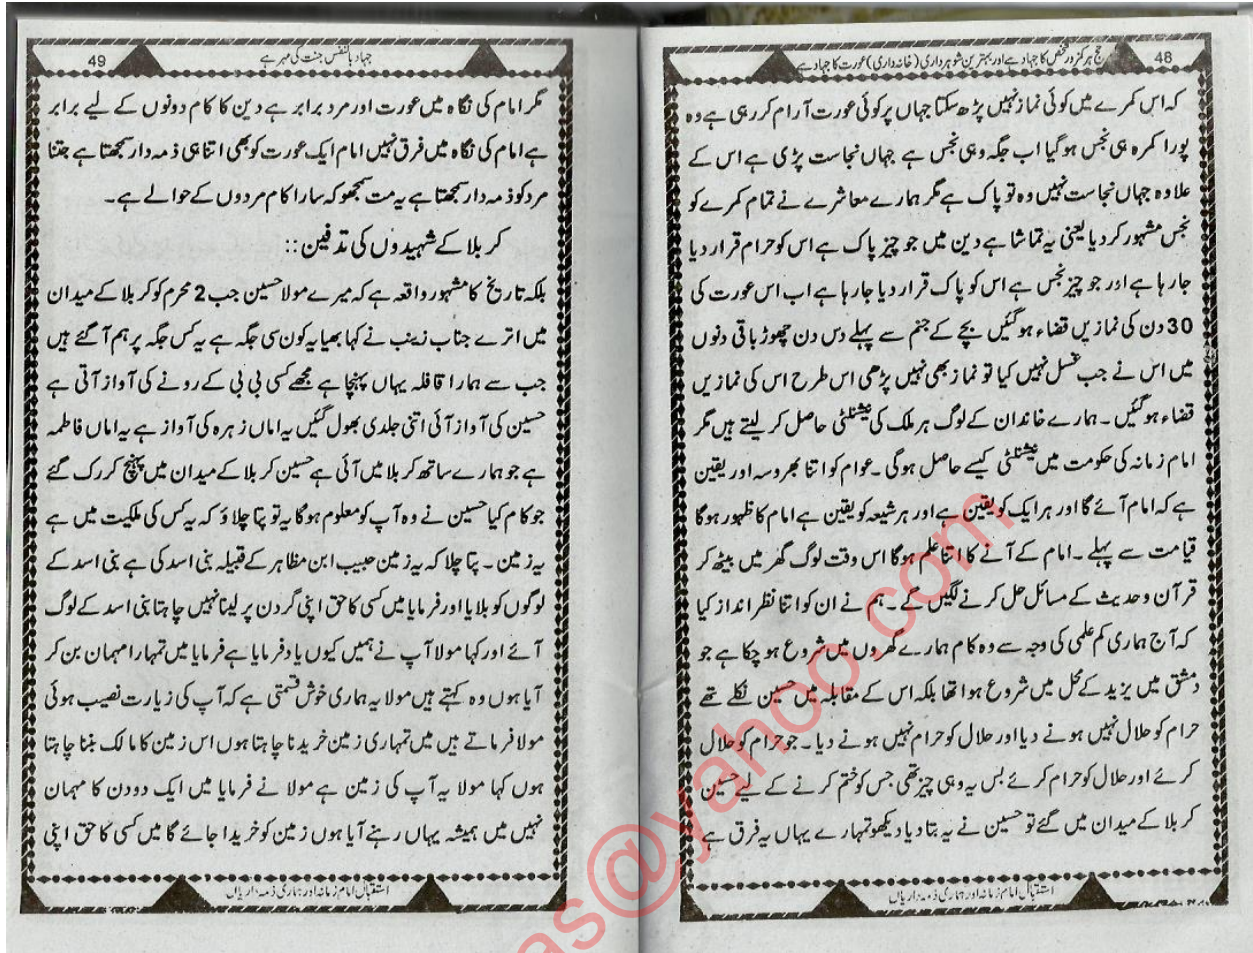 48
حج ہر کمزور شخص کا جہاد ہے اور بہترین شوہرداری (خانہ داری) عورت کا جہاد ہے
کہ اس کمرے میں کوئی نماز نہیں پڑھ سکتا جہاں پر کوئی عورت آرام کر رہی ہے وہ
پورا کمرہ ہی نجس ہو گیا اب جگہ وہی نجس ہے جہاں نجاست پڑی ہے اس کے
علاوہ جہاں نجاست نہیں وہ تو پاک ہے مگر ہمارے معاشرے نے تمام کمرے کو
نجس مشہور کر دیا یعنی یہ تماشا ہے دین میں جو چیز پاک ہے اس کو حرام قرار دیا
جا رہا ہے اور جو چیز نجس ہے اس کو پاک قرار دیا جا رہا ہے اب اس عورت کی
30 دن کی نمازیں قضاء ہو گئیں بچے کے جنم سے پہلے دس دن چھوڑ باقی دنوں
میں اس نے جب غسل نہیں کیا تو نماز بھی نہیں پڑھی اس طرح اس کی نمازیں
قضاء ہو گئیں۔ ہمارے خاندان کے لوگ ہر ملک کی نیشنلٹی حاصل کر لیتے ہیں مگر
امام زمانہ کی حکومت میں نیشنلٹی کیسے حاصل ہو گی۔ عوام کو اتنا بھروسہ اور یقین
ہے کہ امام آئے گا اور ہر ایک کو یقین ہے اور ہر شیعہ کو یقین ہے امام کا ظہور ہو گا
قیامت سے پہلے۔ امام کے آنے کا اتنا علم ہو گا اس وقت لوگ گھر میں بیٹھ کر
قرآن و حدیث کے مسائل حل کرنے لگیں گے۔ ہم نے ان کو اتنا نظر انداز کیا
کہ آج ہماری کم علمی کی وجہ سے وہ کام ہمارے گھروں میں شروع ہو چکا ہے جو
دمشق میں یزید کے محل میں شروع ہوا تھا بلکہ اس کے مقابلہ میں حسین نکلے تھے
حرام کو حلال نہیں ہونے دیا اور حلال کو حرام نہیں ہونے دیا۔ جو حرام کو حلال
کرے اور حلال کو حرام کرے بس یہ وہی چیز تھی جس کو ختم کرنے کے لیے حسین
کربلا کے میدان میں گئے تو حسین نے یہ بتا دیا دیکھو تمہارے یہاں یہ فرق ہے
استقبال امام زمانہ اور ہماری ذمہ داریاں
49
جہاد بالنفس جنت کی مہر ہے
مگر امام کی نگاہ میں عورت اور مرد برابر ہے دین کا کام دونوں کے لیے برابر
ہے امام کی نگاہ میں فرق نہیں امام ایک عورت کو بھی اتنا ہی ذمہ دار سمجھتا ہے جتنا
مرد کو ذمہ دار سمجھتا ہے یہ مت سمجھو کہ سارا کام مردوں کے حوالے ہے۔
کربلا کے شہیدوں کی تدفین::
بلکہ تاریخ کا مشہور واقعہ ہے کہ میرے مولا حسین جب 2 محرم کو کربلا کے میدان
میں اترے جناب زینب نے کہا بھیا یہ کون سی جگہ ہے یہ کس جگہ پر ہم آ گئے ہیں
جب سے ہمارا قافلہ یہاں پہنچا ہے مجھے کسی بی بی کے رونے کی آواز آتی ہے
حسین کی آواز آئی اتنی جلدی بھول گئیں یہ اماں زہرہ کی آواز ہے یہ اماں فاطمہ
ہے جو ہمارے ساتھ کربلا میں آئی ہے حسین کربلا کے میدان میں پہنچ کر رک گئے
جو کام کیا حسین نے وہ آپ کو معلوم ہو گا یہ تو پتا چلاؤ کہ یہ کس کی ملکیت میں ہے
یہ زمین۔ پتا چلا کہ یہ زمین حبیب ابن مظاہر کے قبیلہ بنی اسد کی ہے بنی اسد کے
لوگوں کو بلایا اور فرمایا میں کسی کا حق اپنی گردن پر لینا نہیں چاہتا بنی اسد کے لوگ
آئے اور کہا مولا آپ نے ہمیں کیوں یاد فرمایا ہے فرمایا میں تمہارا مہمان بن کر
آیا ہوں وہ کہتے ہیں مولا یہ ہماری خوش قسمتی ہے کہ آپ کی زیارت نصیب ہوئی
مولا فرماتے ہیں میں تمہاری زمین خریدنا چاہتا ہوں اس زمین کا مالک بننا چاہتا
ہوں کہا مولا یہ آپ کی زمین ہے مولا نے فرمایا میں ایک دو دن کا مہمان
نہیں میں ہمیشہ یہاں رہنے آیا ہوں زمین کو خریدا جائے گا میں کسی کا حق اپنی
استقبال امام زمانہ اور ہماری ذمہ داریاں
as@yahoo.com